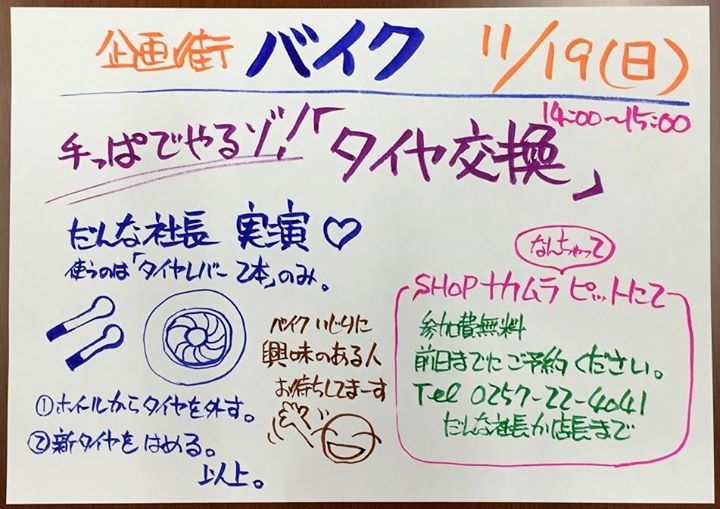 企画街 バイク 11/19(日)
14:00～15:00
手っぱでやるゾ!「タイヤ交換」
だんな社長 実演♡
使うのは「タイヤレバー 2本」のみ。
①ホイルからタイヤを外す。
②新タイヤをはめる。
以上。
バイクいじりに
興味のある人
お待ちしてまーす
なんちゃって
SHOPナカムラ ピットにて
参加費無料
前日までにご予約ください。
Tel 0257-22-4041
だんな社長か店長まで